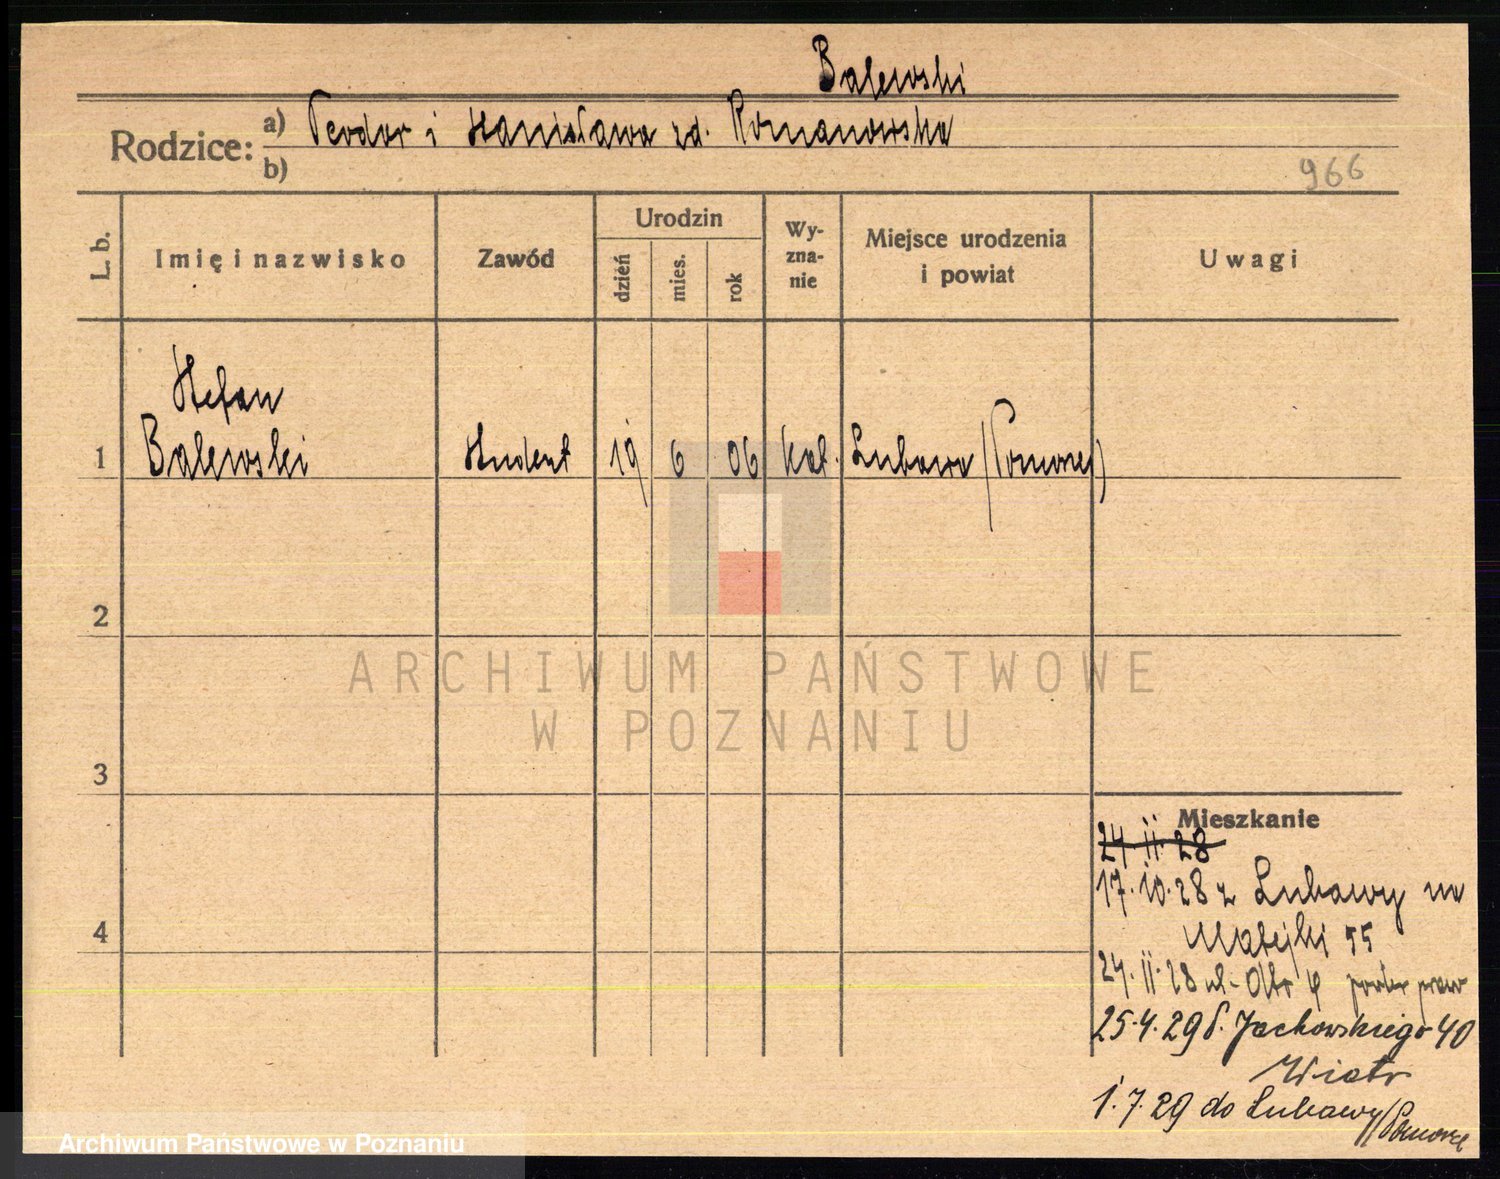 Balewski
Rodzice: a) Teodor i Stanisława zd. Romanowska
b)
966
L. b.
Imię i nazwisko
Zawód
Urodzin
dzień
mies.
rok
Wy-
zna-
nie
Miejsce urodzenia
i powiat
Uwagi
Stefan
1 Balewski student 19 6 06 kat. Lubawa (Pomorze)
2
ARCHIWUM PAŃSTWOWE
W POZNANIU
3
4
Mieszkanie
24. 11. 28
17. 10. 28 z Lubawy na
Matejki 55
24. 11. 28 ul. 4 parter prawo
25. 4. 29 Jackowskiego 40
Wiatr
1. 7. 29 do Lubawy (Pomorze
Archiwum Państwowe w Poznaniu